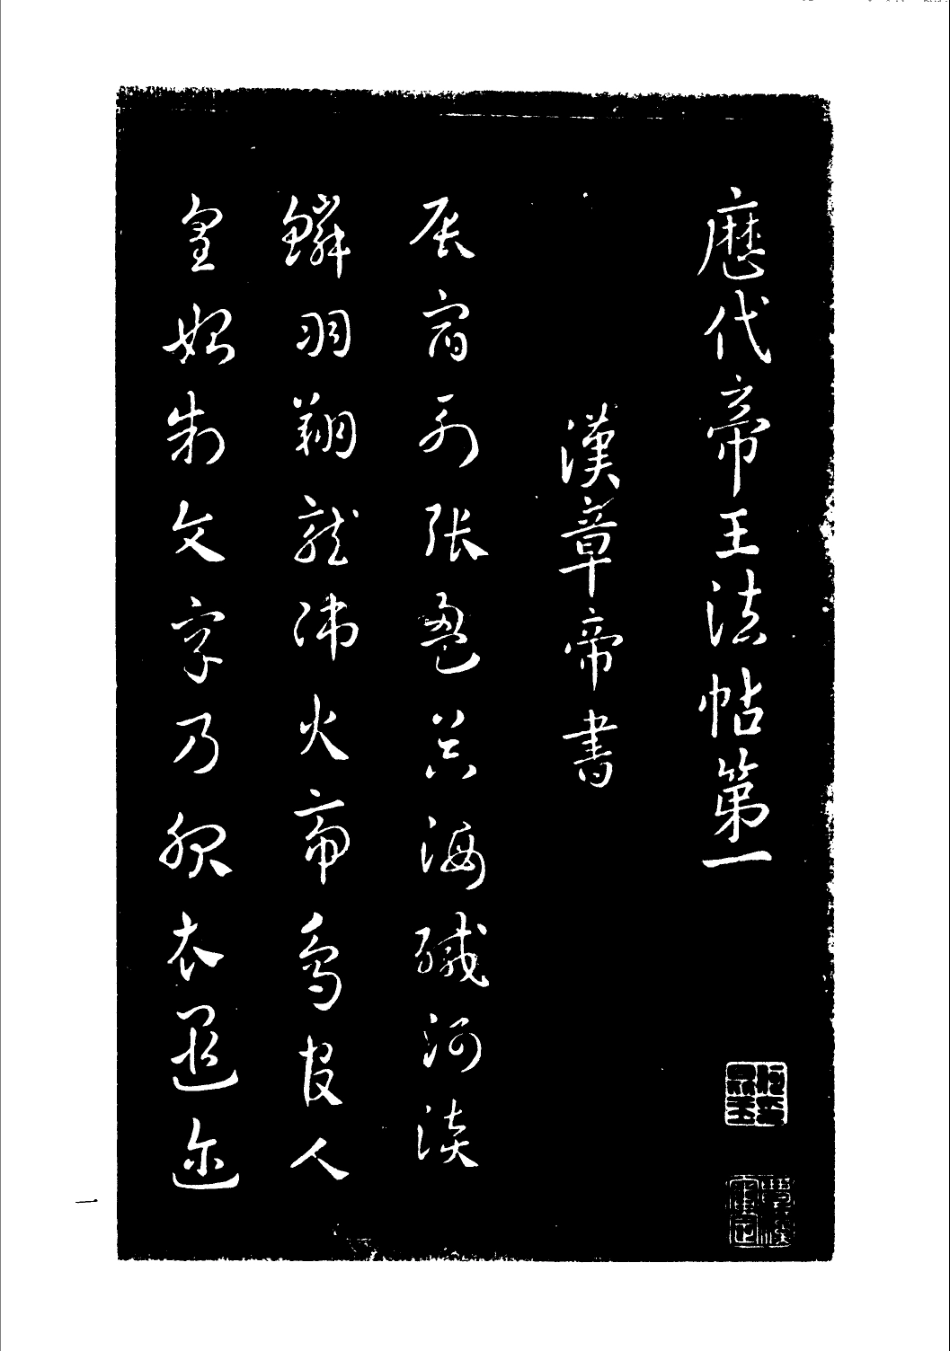 歷代帝王法帖第一
漢章帝書
辰宿列張盈海鹹河淡
鱗羽翔龍師火帝鳥官人
皇始制文字乃服衣遐迩
一